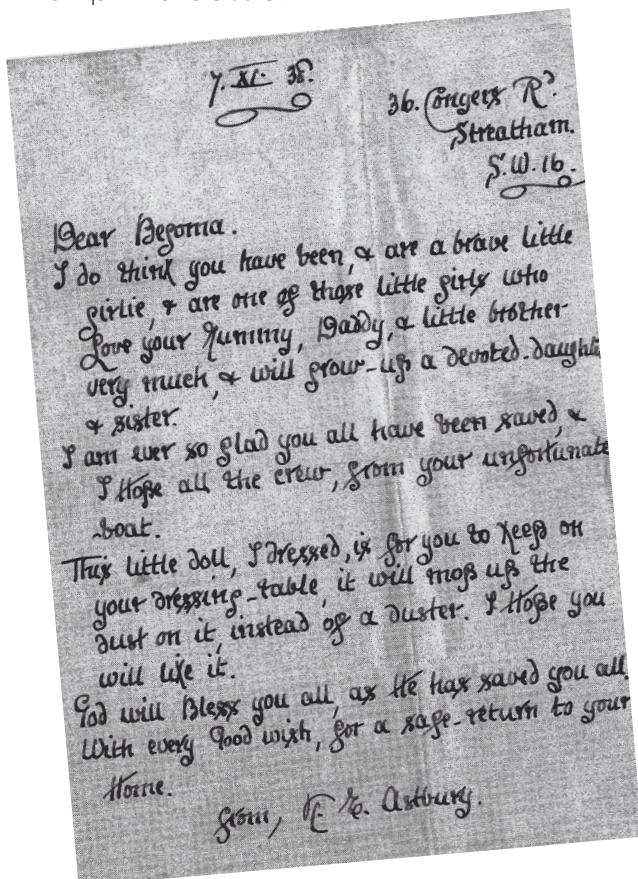 7. XI. 38.
36. Conyers Rd.
Streatham.
S.W. 16.
Dear Begonia.
I do think you have been, & are a brave little
girlie, & are one of those little girls who
Love your Mummy, Daddy, & little brother
very much, & will grow-up a devoted-daughte
& sister.
I am ever so glad you all have been saved, &
I Hope all the crew, from your unfortunate
boat.
This little doll, I dressed, is for you to Keep on
your dressing-table, it will mop up the
dust on it, instead of a duster. I Hope you
will like it.
God will Bless you all, as He has saved you all.
With every Good wish, for a safe-return to your
Home.
from, E. Astbury.